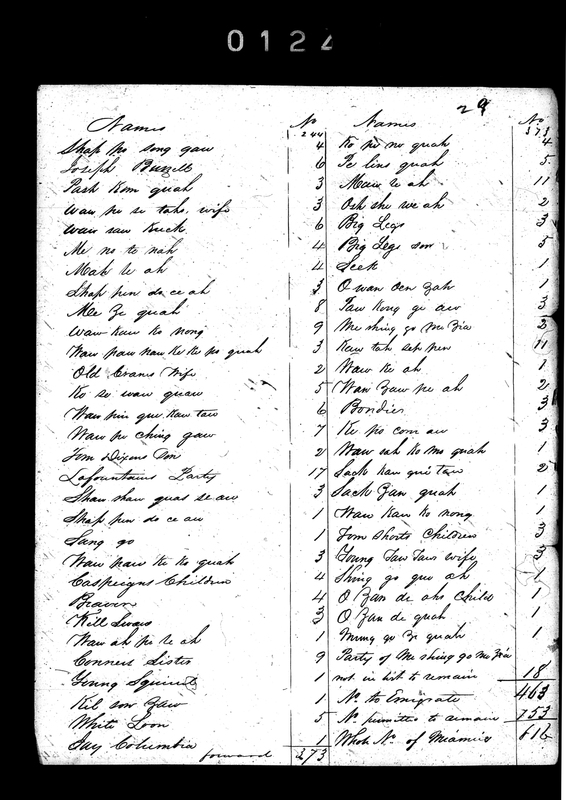 0124
29
Names No
244
Shap no song gaw 4
Joseph Buzzell 6
Pash Kom quah 3
Waw pe se tahs wife 3
Waw saw Kuck 6
Me no te nah 4
Mah te ah 4
Shap pen do ce ah 3
Mee Ze quah 8
Waw Kaw Ko nong 9
Waw paw naw Ke Ke po quah 3
Old Evans Wife 2
Ko se waw quaw 5
Waw pin que Kaw taw 6
Waw pe Ching gaw 7
Tom Dixons Son 2
Lafountains Party 17
Shaw shaw quas se aw 3
Shap pen do ce aw 1
Sang go 1
Waw paw Ke Ko quah 3
Caspeigns Children 4
Beaver 4
Kill Swars 3
Waw ah pe te ah 1
Conners Sister 9
Young Squirrel 1
Kil son Zaw 1
White Loon 5
Jay Columbia 1
forward 373
Names No
373
Ko pe no quah 4
Te lins quah 5
Maw te ah 11
Osh she we ah 2
Big Legs 3
Big Legs son 5
Seek 1
O wan den Zah 1
Taw Kong ge aw 3
Me shing go me Zia 2
Kaw tah seh pen 11
Waw Ke ah 1
Waw Zaw pe ah 2
Bondies 3
Ke po com aw 3
Waw sah Ko mo quah 1
Sack Kaw que taw 2
Sack Zan quah 1
Waw Kaw Ko nong 1
Tom Shorts Children 3
Young Taw Taws wife 3
Shing go quu ah 1
O Zan de ahs Child 1
O Zan de quah 1
Mung go Ze quah 1
Party of Me shing go me Zia
not in list to remain 18
No. to Emigrate 463
No permitted to remain 753
Whole No. of Miamies 616